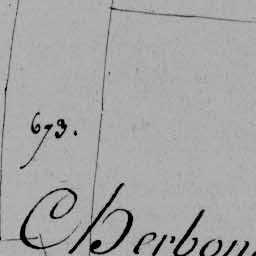 673.
Cherbon